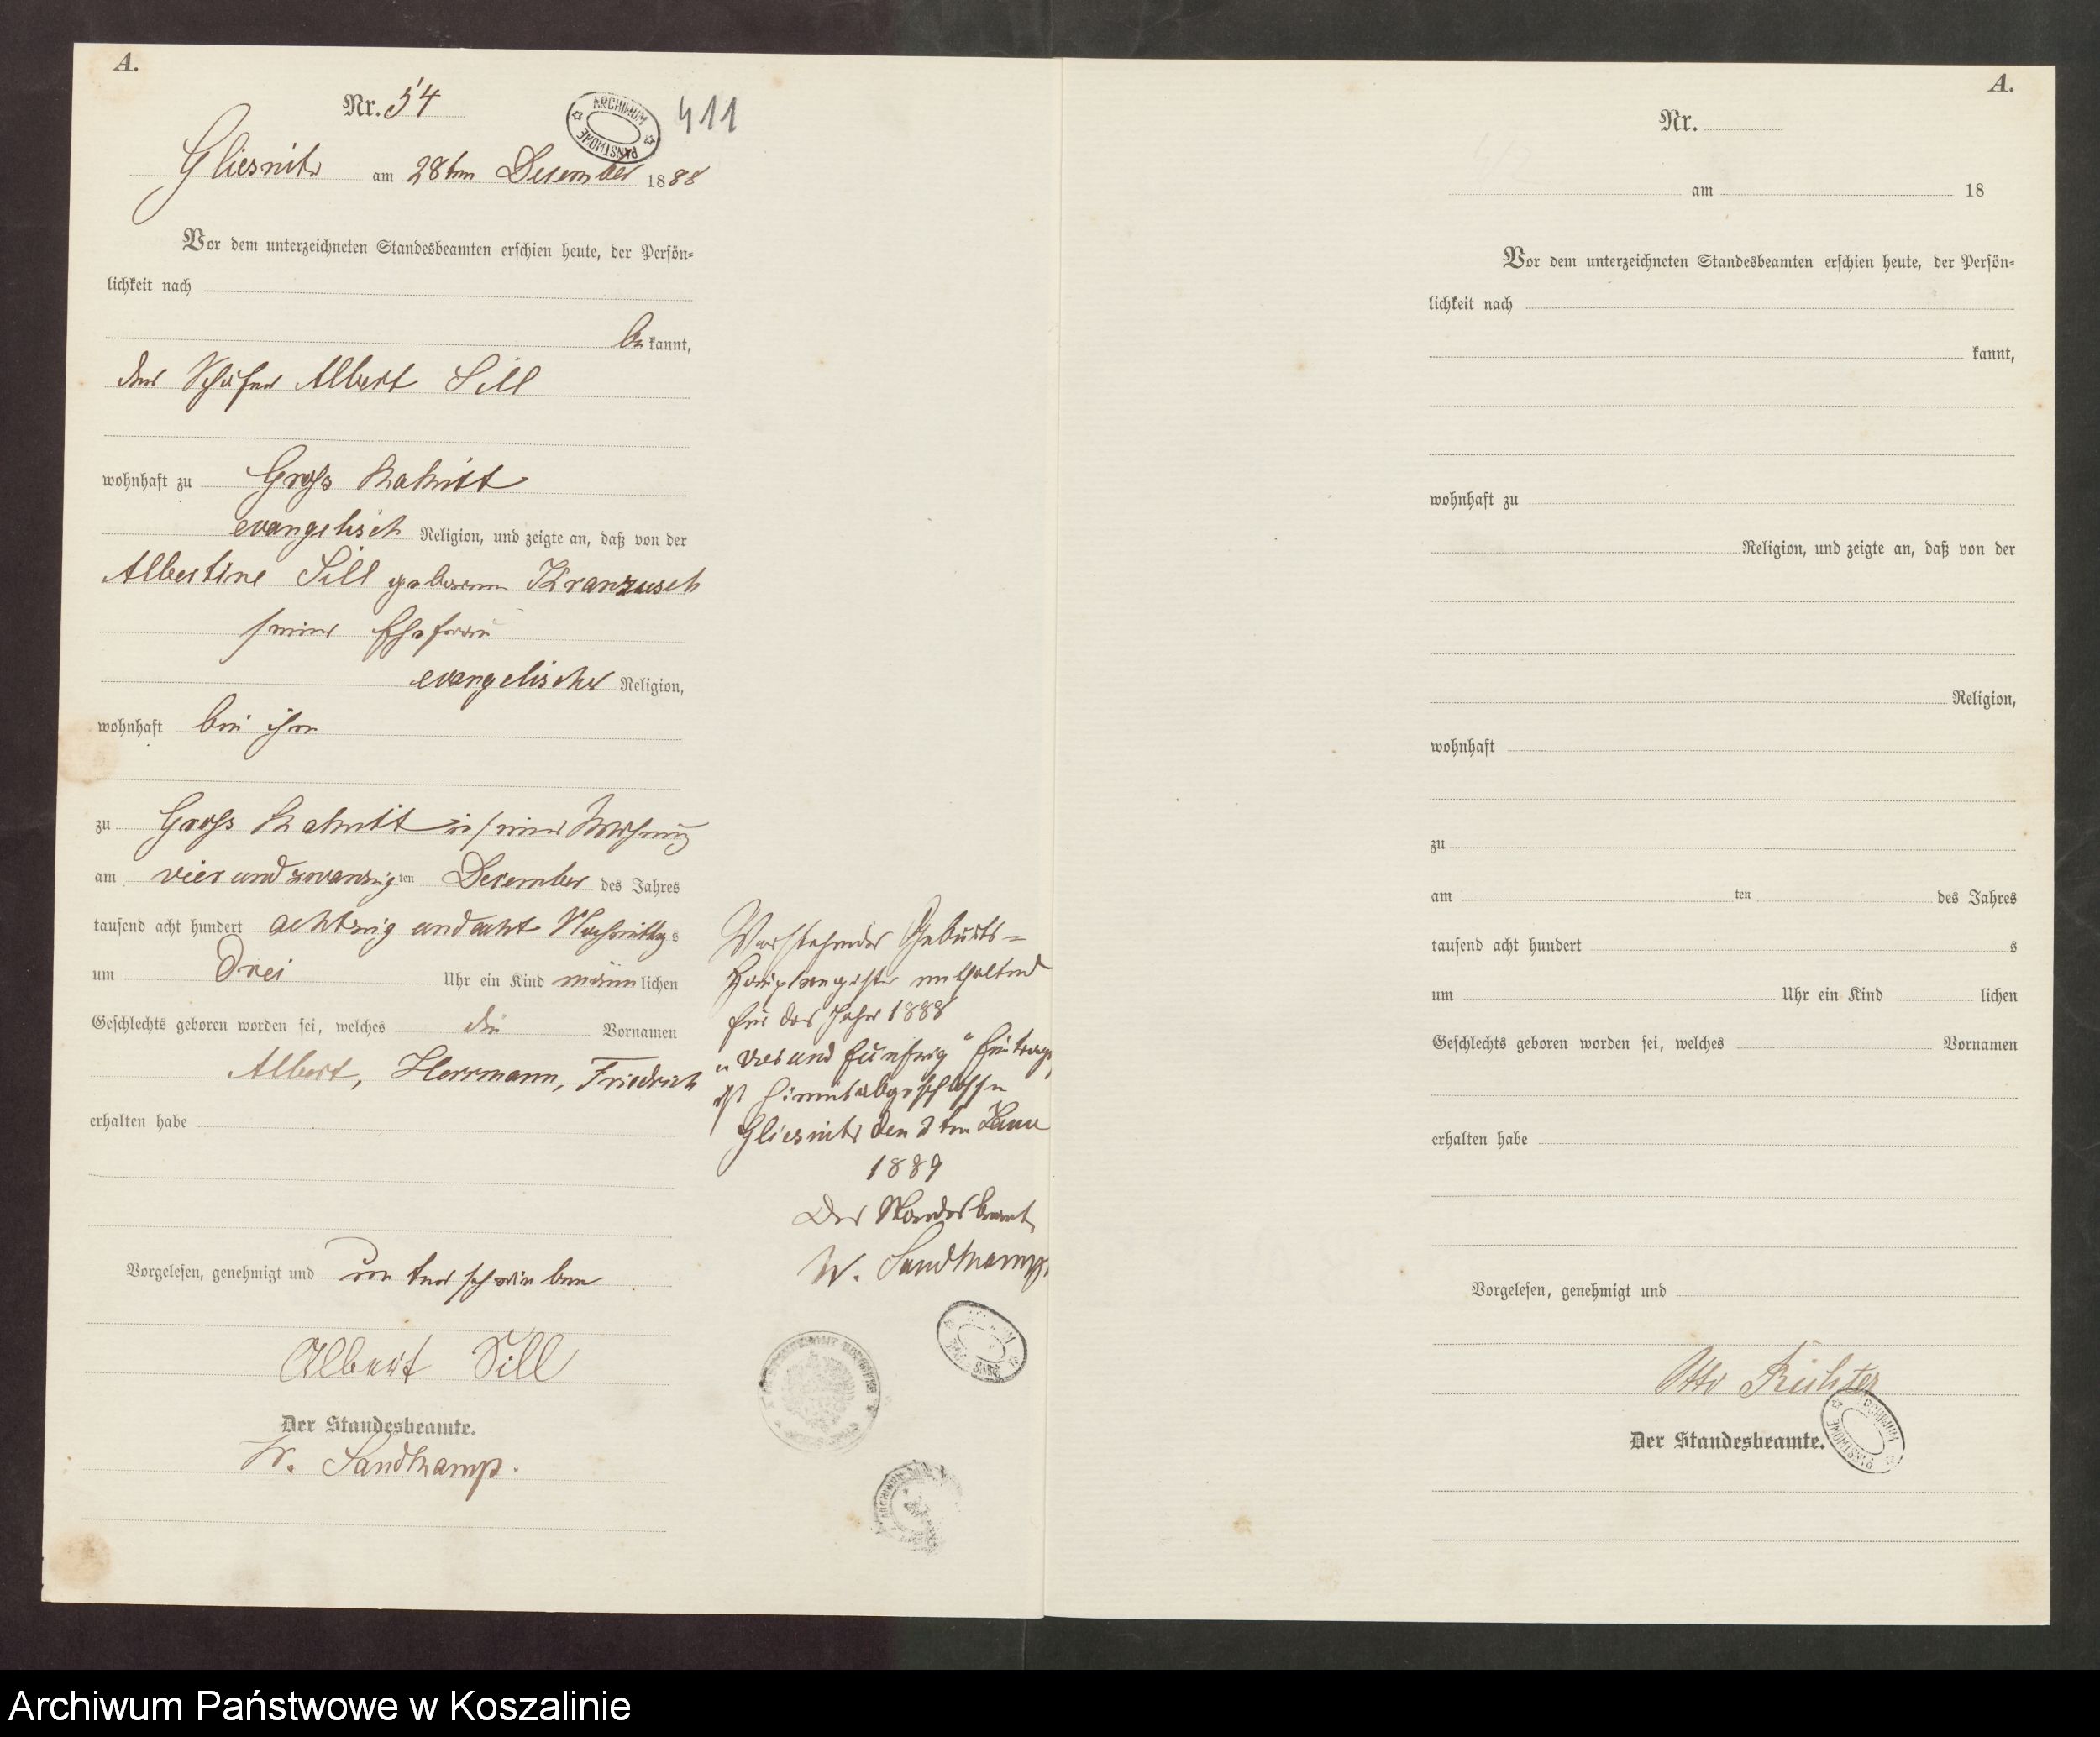 A.
Nr. 54
411
ARCHIWUM PAŃSTWOWE
Gliesnitz am 28ten Dezember 1888
Vor dem unterzeichneten Standesbeamten erschien heute, der Persön-
lichkeit nach
bekannt,
der Schäfer Albert Sill
wohnhaft zu Gross
evangelisch Religion, und zeigte an, daß von der
Albertine Sill geborenen Kranzusch
seiner Ehefrau
evangelischer Religion,
wohnhaft bei ihm
zu Gross in seiner Wohnung
am vierundzwanzigten Dezember des Jahres
tausend acht hundert achtzig und acht Nachmittags
um drei Uhr ein Kind männlichen
Geschlechts geboren worden sei, welches die Vornamen
Albert, Herrmann, Friedrich
erhalten habe
Vorgelesen, genehmigt und unterschrieben
Albert Sill
Der Standesbeamte.
W. Sandkamp.
Vorstehendes Geburts-
Hauptregister enthaltend
für das Jahr 1888
„vierundfünfzig“ Eintrag
ist hiermit abgeschlossen
Gliesnitz den ten
1889
Der Standesbeamte
W. Sandkamp.
A.
Nr.
am 18
Vor dem unterzeichneten Standesbeamten erschien heute, der Persön-
lichkeit nach
kannt,
wohnhaft zu
Religion, und zeigte an, daß von der
Religion,
wohnhaft
zu
am ten des Jahres
tausend acht hundert s
um Uhr ein Kind lichen
Geschlechts geboren worden sei, welches Vornamen
erhalten habe
Vorgelesen, genehmigt und
Otto Richter
Der Standesbeamte.
ARCHIWUM PAŃSTWOWE
Archiwum Państwowe w Koszalinie